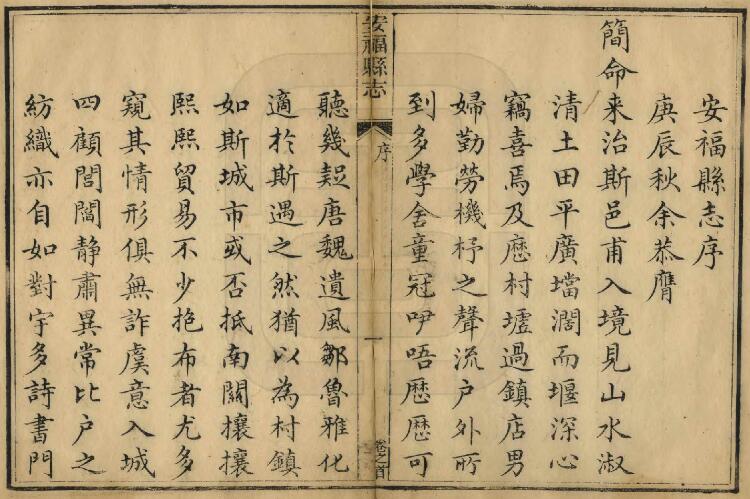 安福縣志序
庚辰秋余恭膺
簡命来治斯邑甫入境見山水淑
清土田平廣壋濶而堰深心
竊喜焉及歷村墟過鎮店男
婦勤勞機杼之聲流户外所
到多學舍童冠咿唔歷歷可
安福縣志
序
一
卷之首
聽幾疑唐魏遺風鄒魯雅化
適於斯遇之然猶以為村鎮
如斯城市或否抵南關攘攘
熙熙貿易不少抱布者尤多
窺其情形俱無詐虞意入城
四顧閭閻静肅異常比户之
紡織亦自如對宇多詩書門